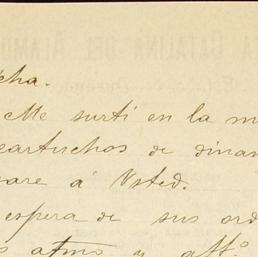 A CATALINA DEL ALAMO
cha.
Me surti en la m
cartuchos de dinam
are á Usted.
espera de sus ord
atmo y affo